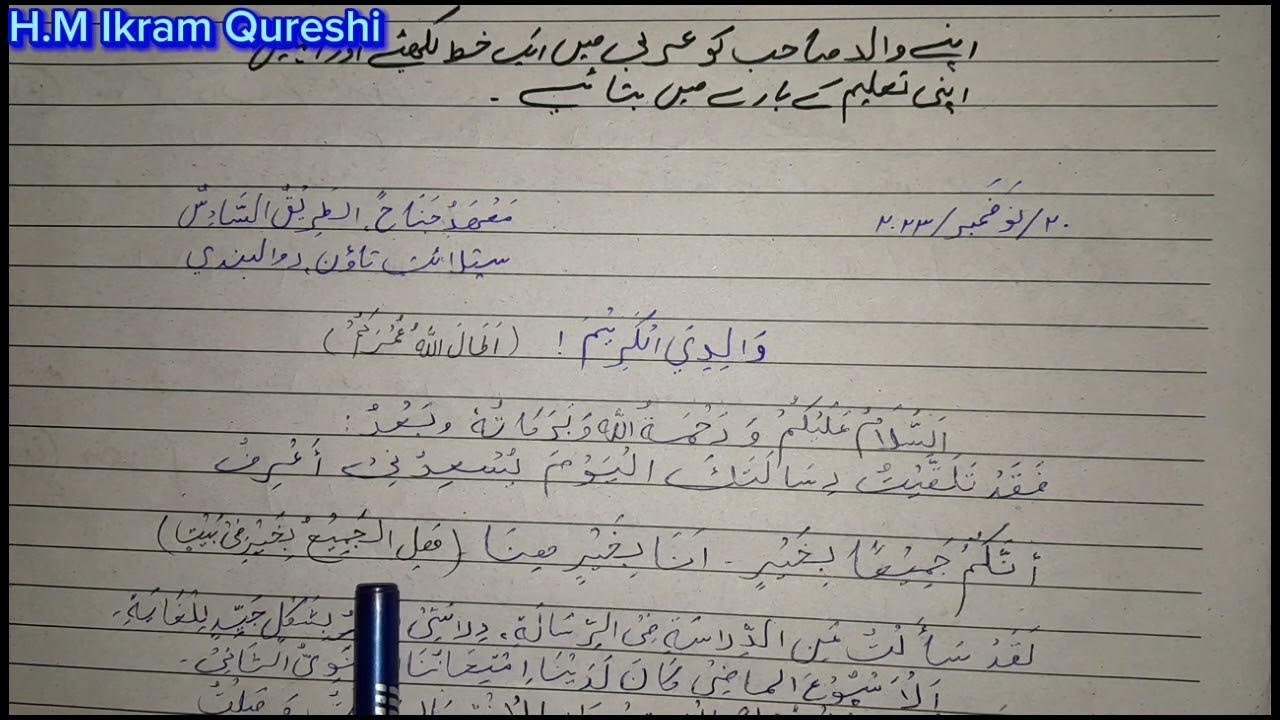 H.M Ikram Qureshi
اپنے والد صاحب کو عربی میں ایک خط لکھئے اور انہیں
اپنی تعلیم کے بارے میں بتائیے۔
٢٠/نَوفَمبر/٢٠٢٣
مَعْهَدُ جَنَاحٍ، الطَرِيْقُ السَّادِسُ
سیتلائت تاؤن، روالبندي
وَالِدِيَ الْكَرِيْمَ! (اَطَالَ اللّٰهُ عُمُرَكُمْ)
اَلسَّلَامُ عَلَيْكُمْ وَرَحْمَةُ اللّٰهِ وَبَرَكَاتُهُ وبَعْدُ:
فَقَدْ تَلَقَّيْتُ رِسَالَتَكَ الْيَوْمَ يُسْعِدُنِيْ أَعْرِفُ
أَنَّكُمْ جَمِيْعًا بِخَيْرٍ۔ اَنَا بِخَيْرٍ هِنَا (فَهَلِ الْجَمِيْعُ بِخَيْرٍ فِيْ بَيْتٍ)
لَقَدْ سَأَلْتُ عَنِ الدِّرَاسَةِ فِي الرِّسَالَةِ، دِرَاسَتِيْ بِشَكْلٍ جَيِّدٍ لِلْغَايَةِ۔
اَلْاُسْبُوْعَ الماضِيْ كَانَ لَدَيْنَا اِمْتِحَانُنَا الثَّانِيْ۔